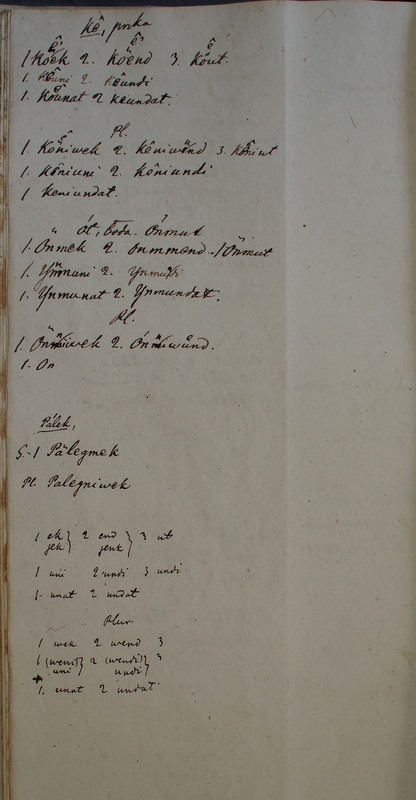 Kê, pnka
1 Köek 2. Köend 3. Köut.
1. Keuni 2. Keundi
1. Köunat 2 keundat.
Pl.
1. Köniwek 2. Kêniwend 3. Köniut
1. Kêniuni 2. Kêniundi
1 Keniundat.
" Ót, boda. Ónmut
1. Onmek 2. Onmend. / Önmut
1. Ynmuni 2. Ynmundi
1. Ynmunat 2. Ynmundat.
Pl.
1. Onniwek 2. Ónniwånd.
1. On
Pálek,
S. 1 Pälegmek
Pl. Palegniwek
1 ek } 2 end } 3 ut
jek jenk
1 uni 2 undi 3 undi
1. unat 2 undat
Plur.
1 wek 2 wend 3
1 (weni) } 2 (wendi) } 3
uni undi
1. unat 2 undat